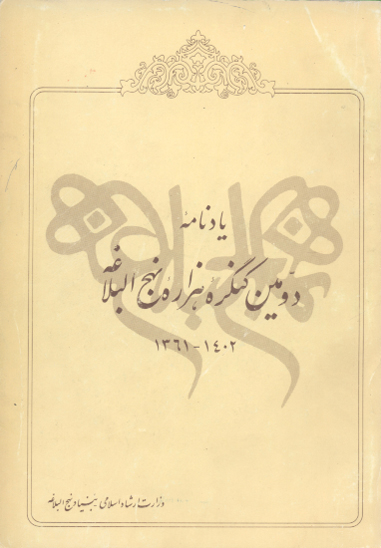 یادنامهٔ
دومین کنگره هزاره نهج البلاغه
۱۴۰۲-۱۳۶۱
وزارت ارشاد اسلامی، بنیاد نهج البلاغه